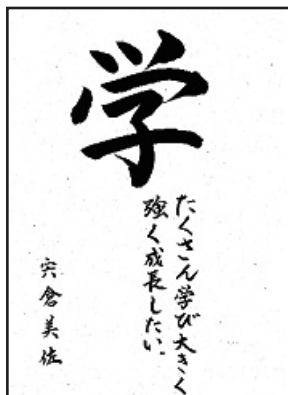 学
たくさん学び大きく
強く成長したい。
宍倉美佐